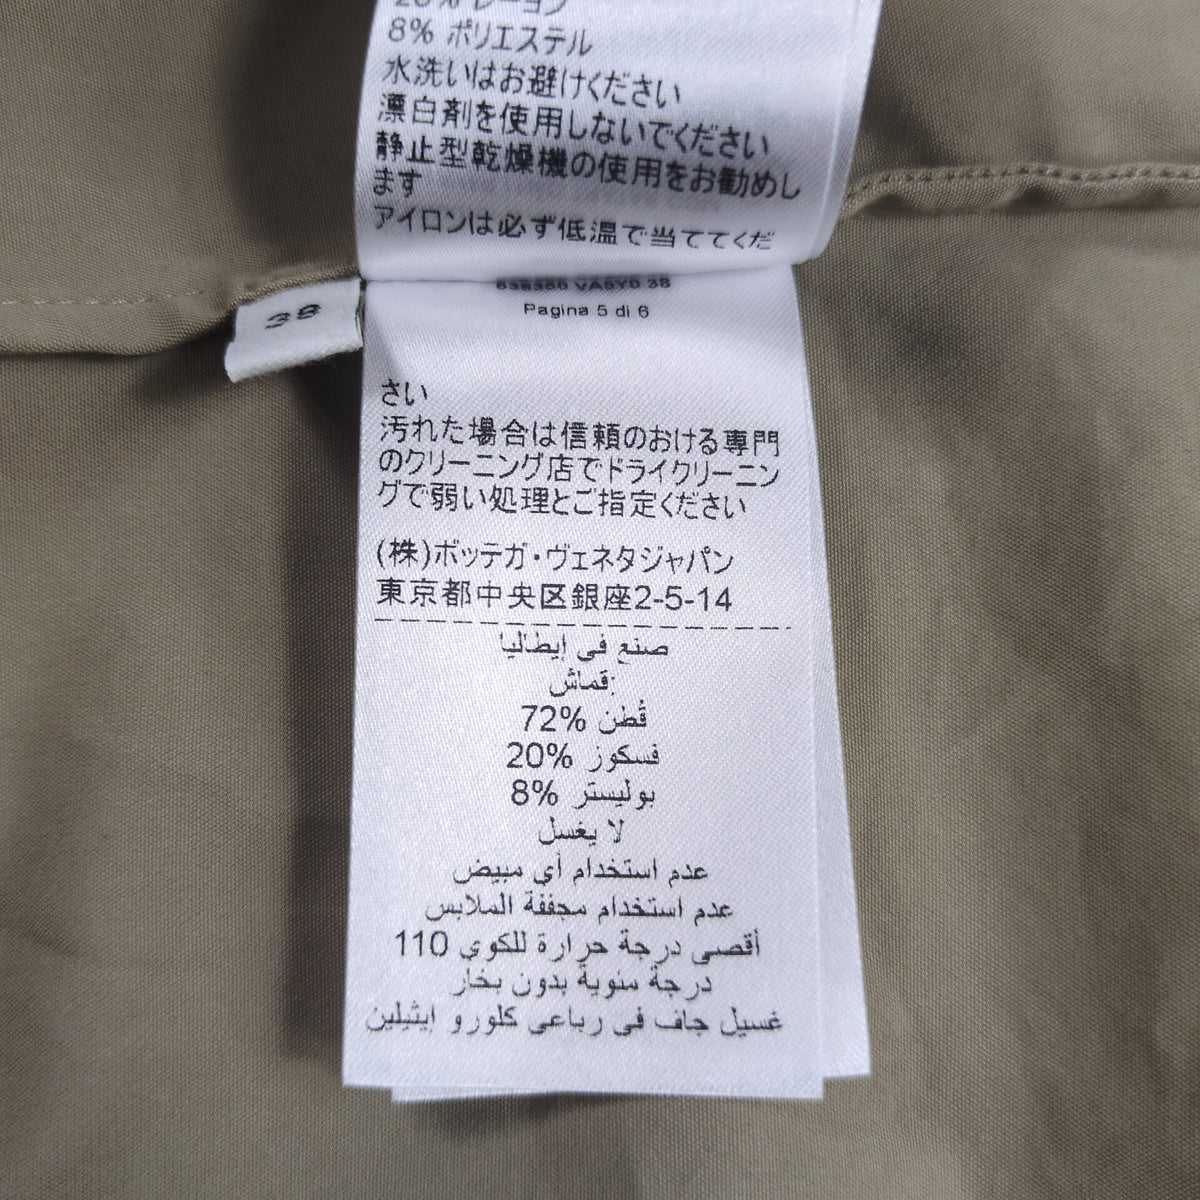 20% レーヨン
8% ポリエステル
水洗いはお避けください
漂白剤を使用しないでください
静止型乾燥機の使用をお勧めし
ます
アイロンは必ず低温で当ててくだ
38
638380 VA5Y0 38
Pagina 5 di 6
さい
汚れた場合は信頼のおける専門
のクリーニング店でドライクリーニン
グで弱い処理とご指定ください
(株)ボッテガ・ヴェネタジャパン
東京都中央区銀座2-5-14
صنع في إيطاليا
قماش:
قُطن 72%
فسكوز 20%
بوليستر 8%
لا يغسل
عدم استخدام أي مبيض
عدم استخدام مجففة الملابس
أقصى درجة حرارة للكوي 110
درجة مئوية بدون بخار
غسيل جاف في رباعي كلورو إيثيلين